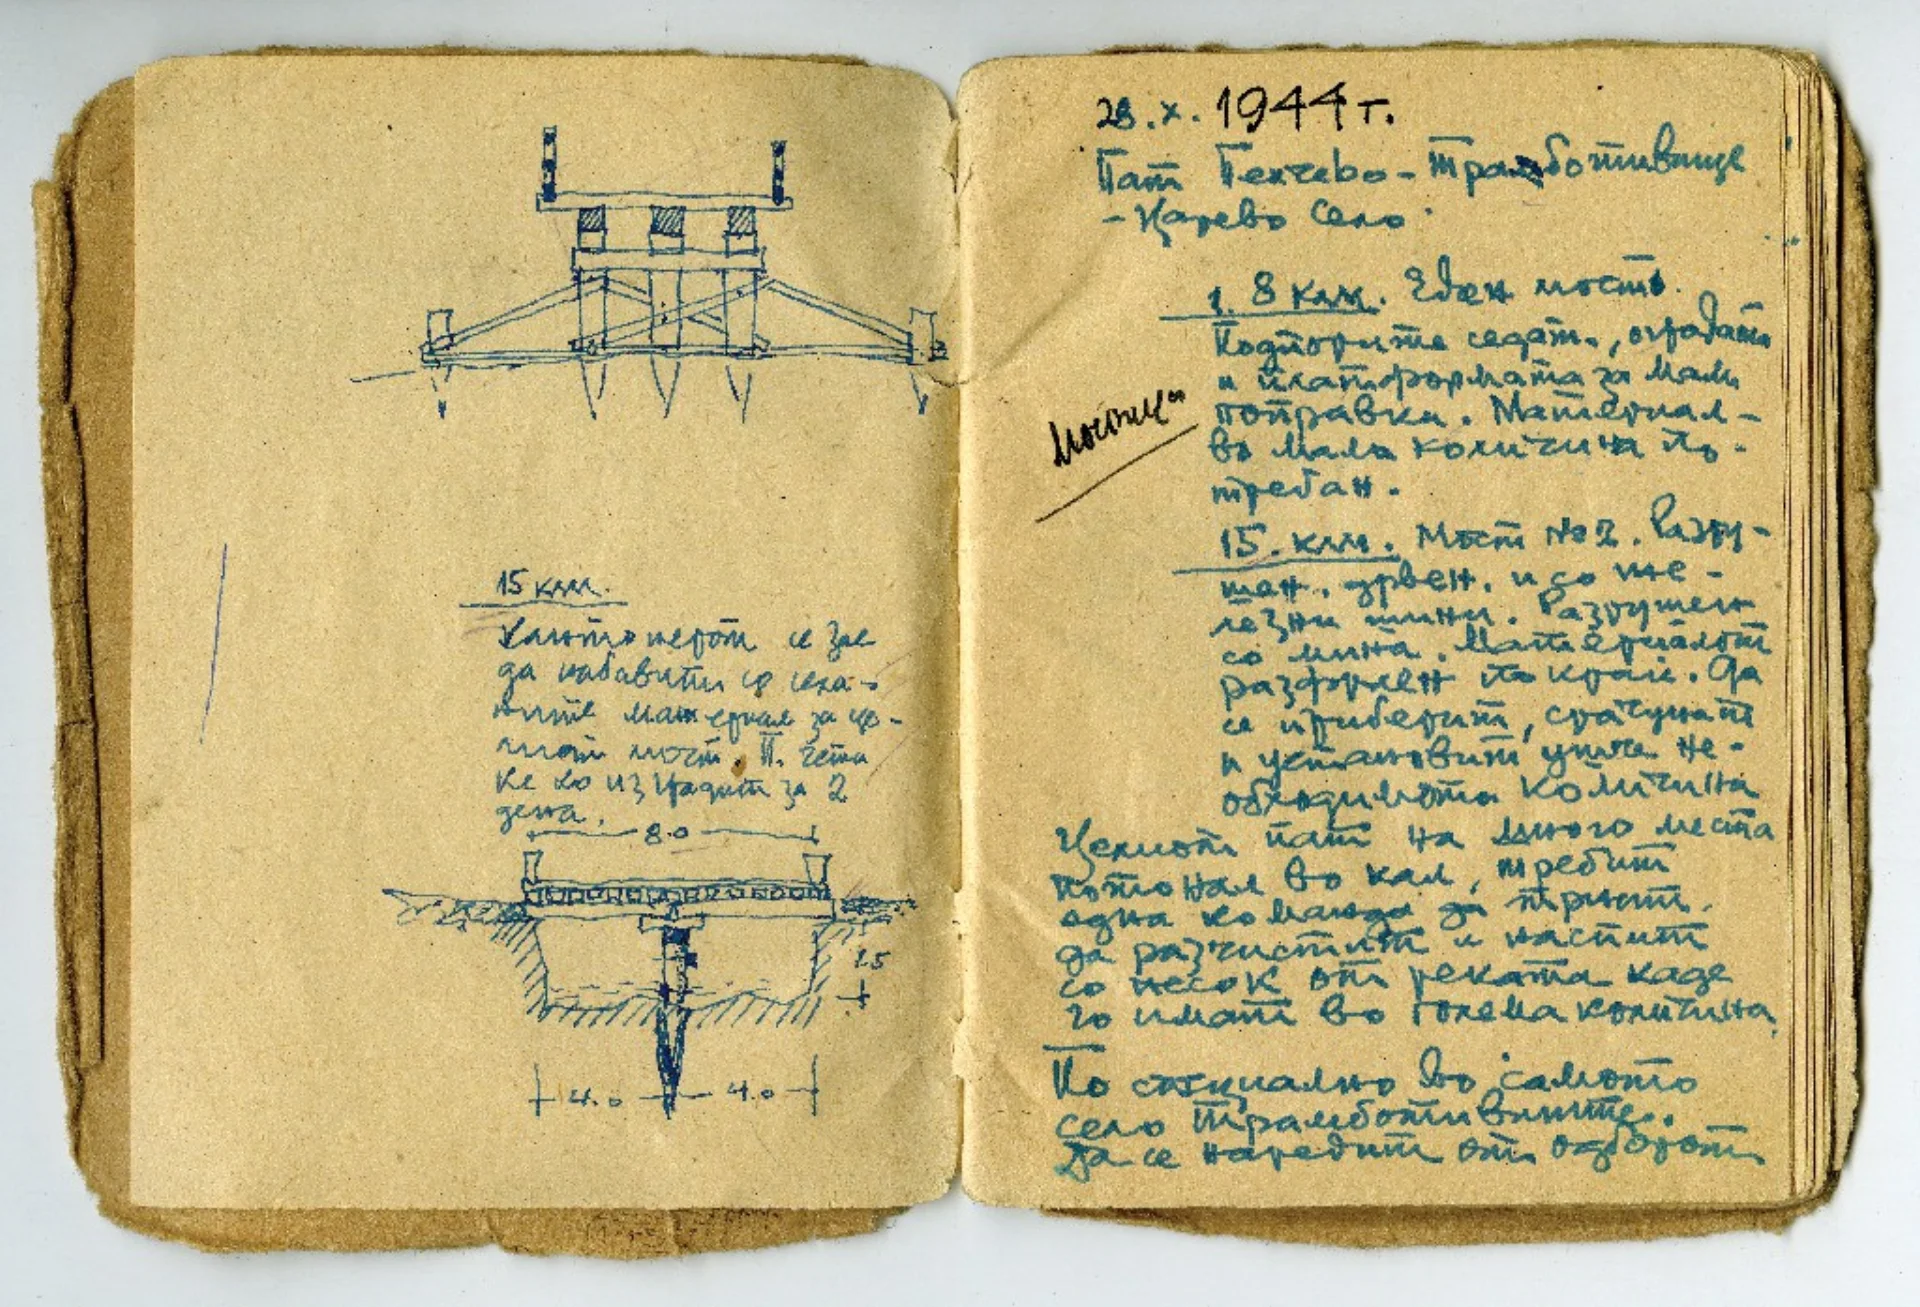 15 км.
се зе
да набавит
материал за це-
мост. П. чета
ке го изградит за 2
дена.
8.0
1.5
4.0 4.0
28.X.1944 г.
Пат Пехчево - Трамботивище
- Царево Село
1. 8 км. Еден мостъ.
Подпорите седат, оградата
и платформата за мали
поправки. Материал -
во мала количина по-
требан.
Мостици
15. км. Мост № 2. Разру-
шен. дрвен. и со же-
лезни шини. Разрушен
со мина. Материјалот
разфрлен по крај. Да
се приберит, срачунат
и установит уште не-
обходимота количина
Целиот пат на много места
потонал во кал, требит
една команда да тргнит.
да разчистит и наспит
со песок от реката каде
го имат во голема количина.
По специално во самото
село Трамботивиште.
Да се наредит от одборот